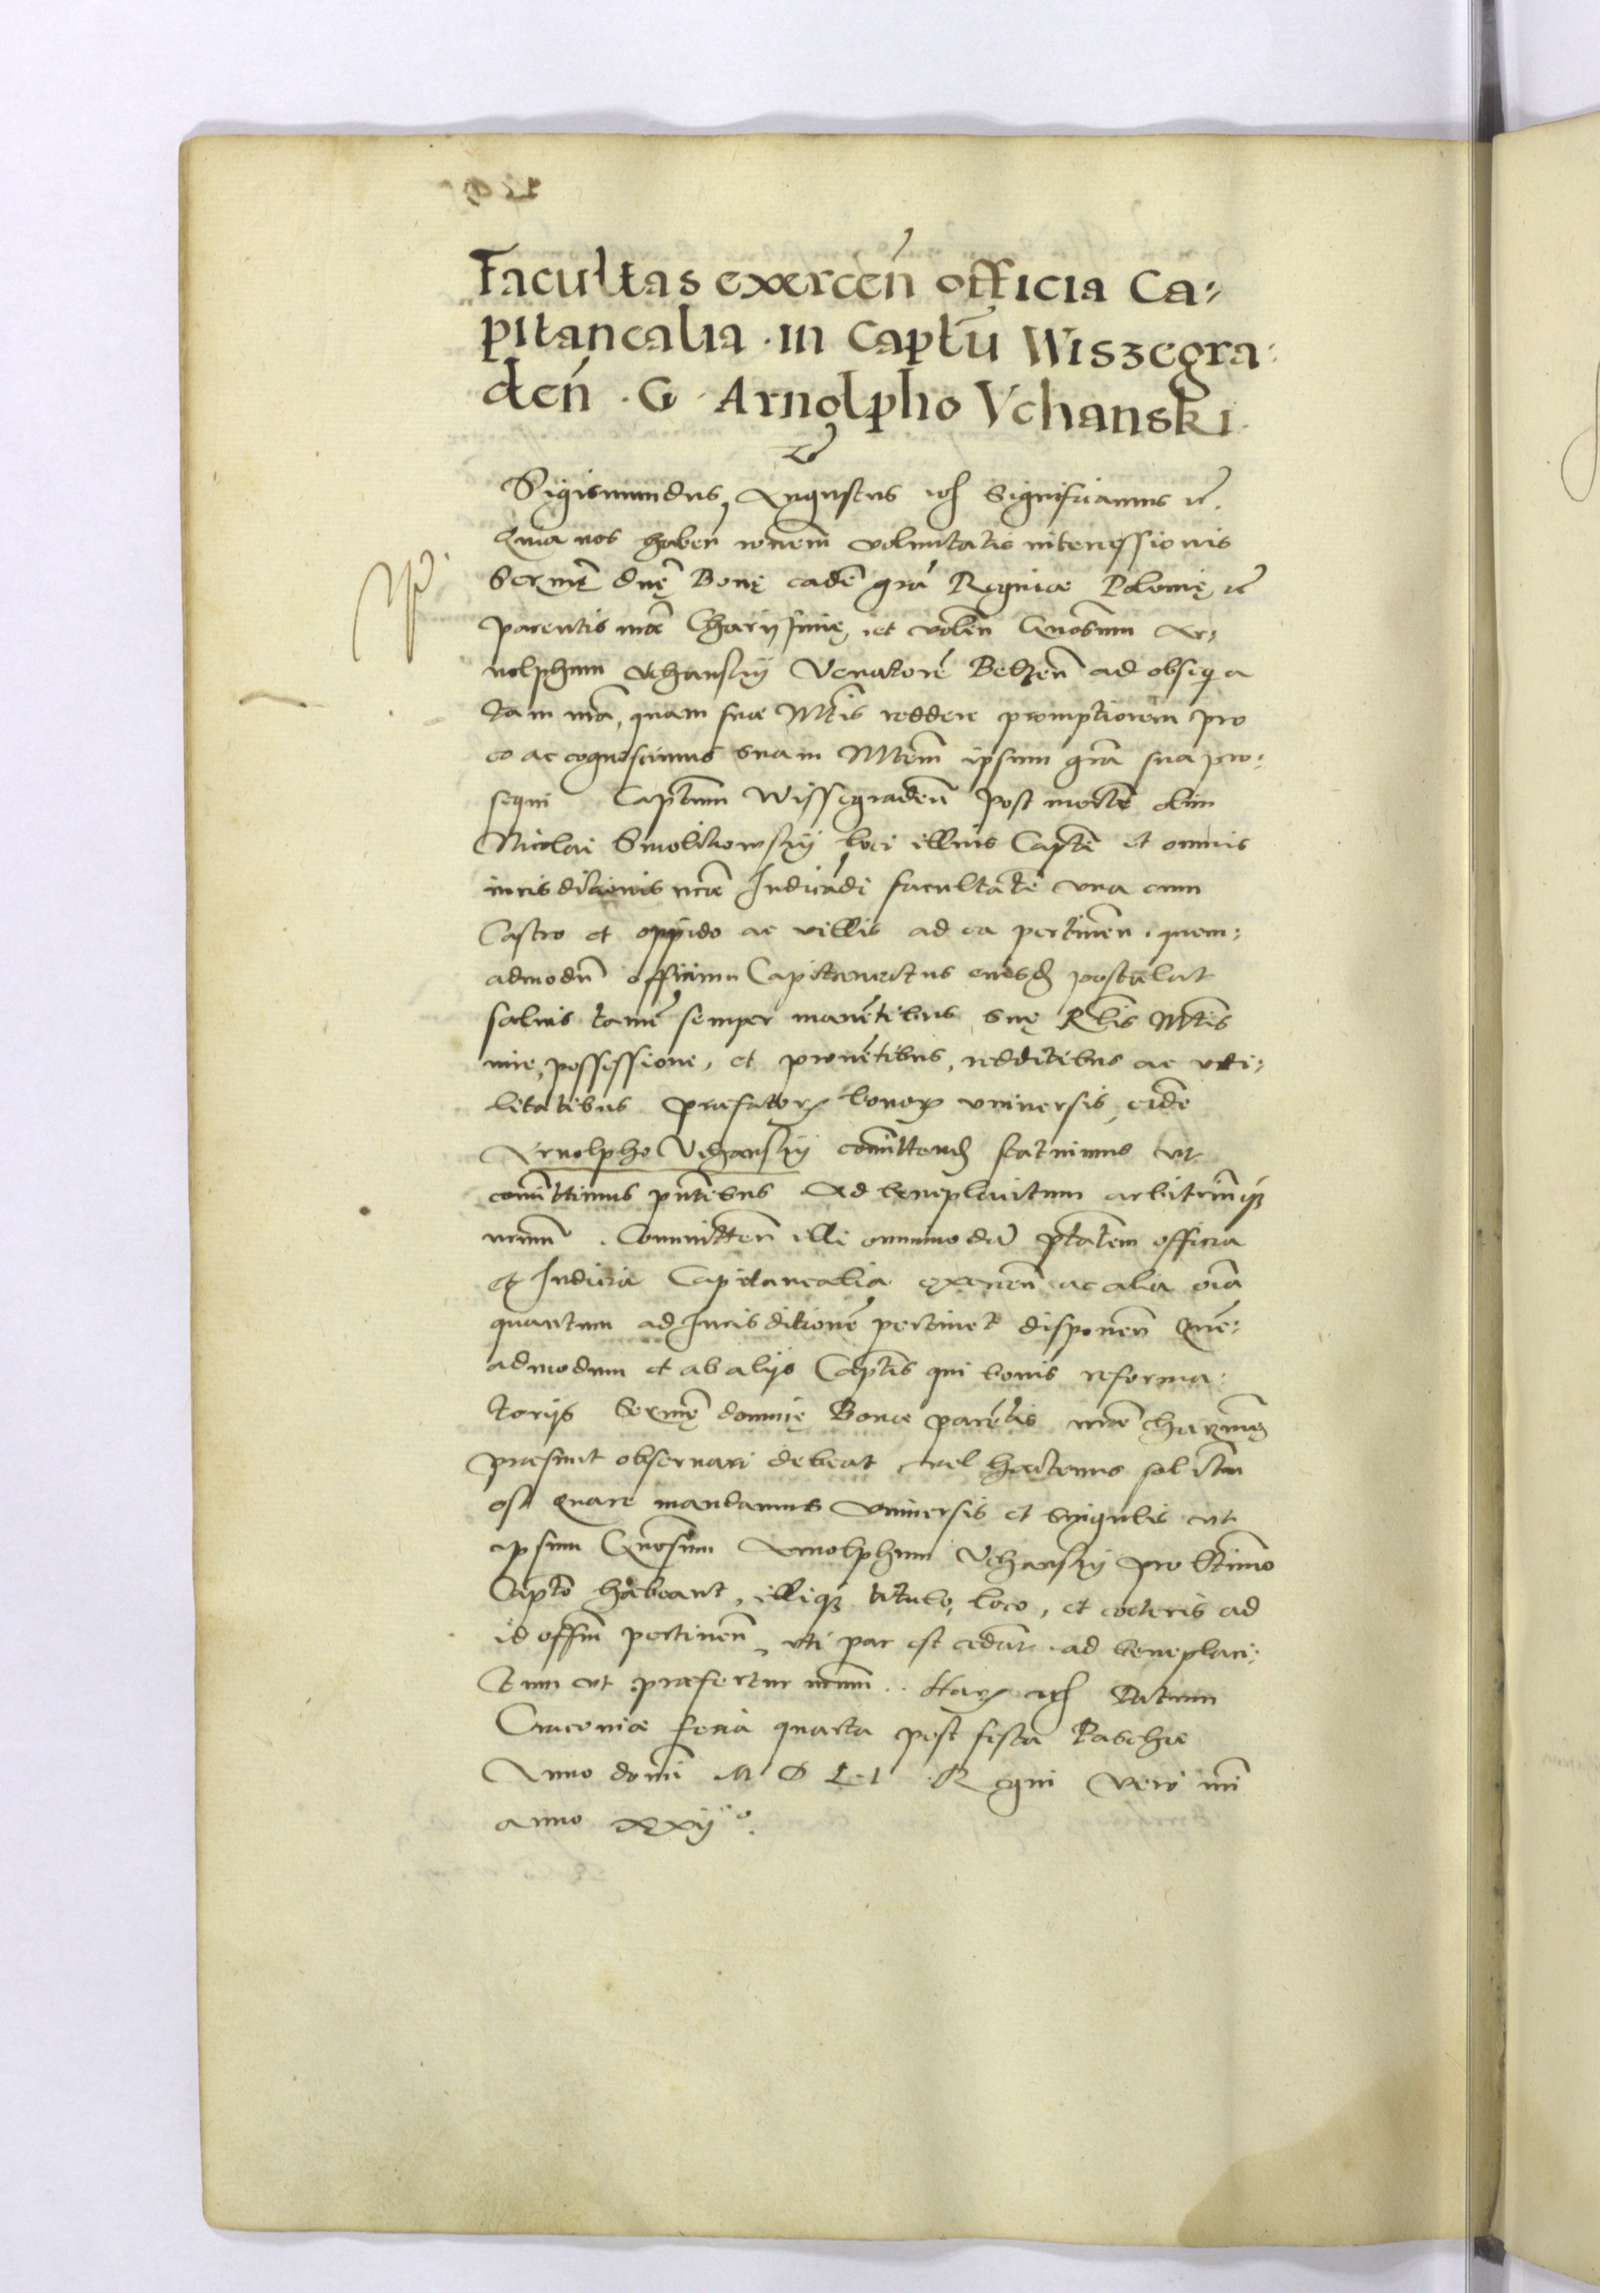 Facultas exercen̄ officia Ca⸗
pitancalia · in Captū Wiszegra⸗
den̄ · G · Arnolpho Vchanski
Sigismundus Augustus etc̄ Significamus etc̄.
Quia nos haben̄ ronem̄ voluntatis intercessionis
Sermę dnę Bonę eadē gra Reginae Polonię etc̄
parentis nrae Charissimę, et volen̄ Gnosum Ar⸗
nolphum Uchanskij Venatorē Belzen̄ ad obsequia
tam nra, quam suae Mtis reddere promptiorem pro
eo ac cognoscimus suam Mtem ipsum gra sua pro⸗
sequi Captum Wissegraden̄ post mortē olim
Nicolai Smolikowskij loci illius Captei et omnis
iurisditionis nrae Iudicādi facultatē vna cum
Castro et oppido ac villis ad ea pertinen̄ · quem⸗
admodū officium Capitaneatus eiusd postulat
saluis tamē semper manētibus Suę Rlis Mtis
iure, possessione, et prouētibus, redditibus ac vti⸗
litatibus praefator bonor vniversis, eidē
Arnolpho Vchanskij comittend statuimus vt
comittimus pntibus Ad beneplacitum arbitriumq
nrum . Committen̄ illi omnimodā ptatem officia
et Iudicia Capitanealia exercen̄ ac alia oīa
quantum ad Iurisditionē pertinet disponen̄ Quē⸗
admodum et ab alijs Captis qui bonis reforma⸗
torijs Sermę dominę Bonae parētis nrae charmę
praesunt obseruari debeat vel hactenus solitum
est Quare mandamus vniuersis et singulis vt
ipsum Gnosum Arnolphum Vchanskij pro ltimo
Capto habeant, illiq titulo, loco, et coeteris ad
id offm pertinen̄, uti par est cedāt · ad beneplaci⸗
tum vt praefertur nrum . Har etc̄ Datum
Cracouiae feria quarta post festa Paschae
Anno domi M D L I Regni vero nri
anno XXij°.